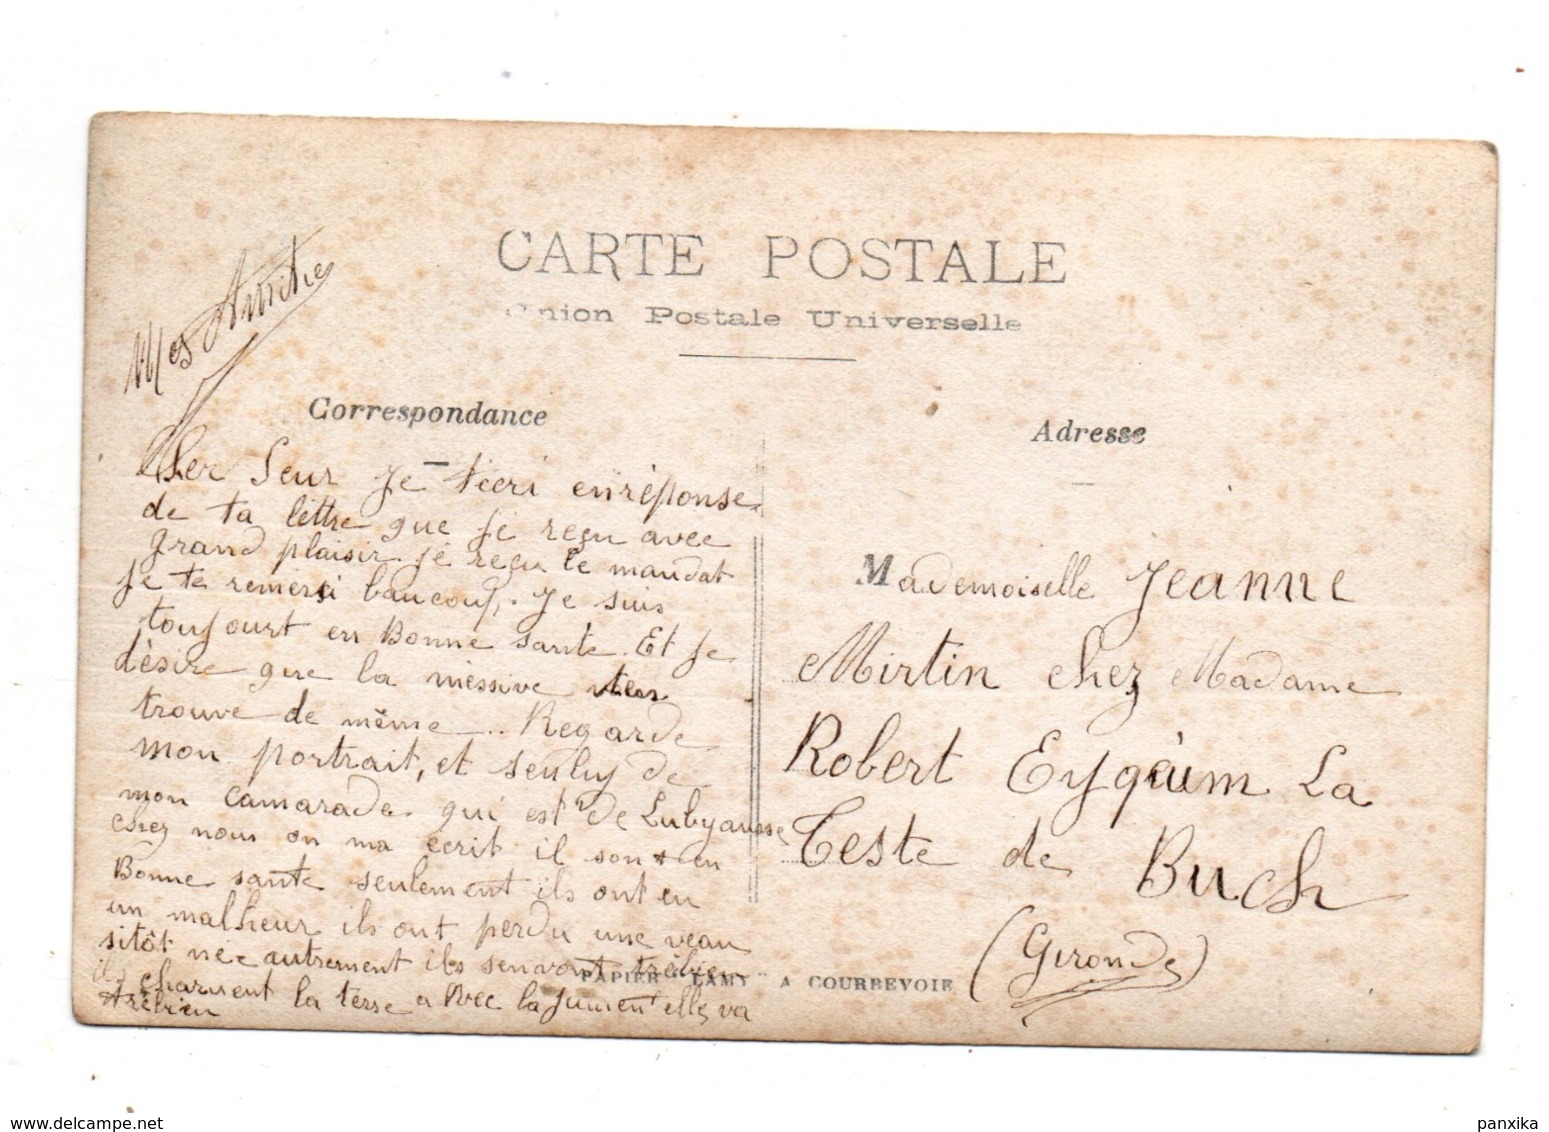 CARTE POSTALE
Union Postale Universelle
Correspondance
Adresse
Mes
Cher Seur Je t'ecri en réponse
de ta léttre que je reçu avec
grand plaisir je reçu le mandat
je te remersi baucoup. Je suis
toujourt en Bonne santé. Et je
désire que la méssive
trouve de même.. Regarde
mon portrait, et seuluy de
mon camarade qui est de
chez nous on ma écrit il sont en
Bonne sante seulement ils ont eu
un malheur ils ont perdu une veau
sitôt né autrement ils senvont trèbien
ils charuent la terre avec la jument elle va
trèbien
Mademoiselle Jeanne
Mirtin chez Madame
Robert Eyquem La
Teste de Buch
(Gironde)
PAPIER "LAMY" A COURBEVOIE
www.delcampe.net
panxika